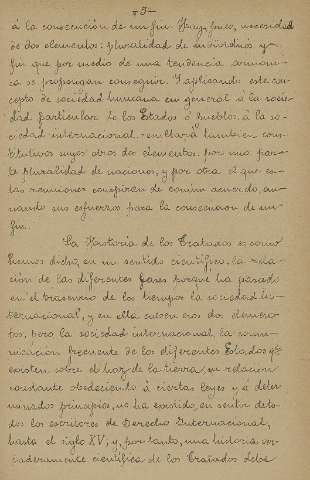 -3-
á la consecución de un fin. Hay, pues, necesidad
de dos elementos: pluralidad de individuos y
fin que por medio de una tendencia armoni-
ca se propongan conseguir. Y aplicando este con-
cepto de sociedad humana en general á la socie-
dad particular de los Estados ó Pueblos, á la so-
ciedad internacional, en ella habrá tambien cons-
titutivos suyos otros dos elementos: por una par-
te pluralidad de naciones, y por otra el que es-
tas naciones conspiren de comun acuerdo, au-
nando sus esfuerzos para la consecucion de un
fin.
La Historia de los Tratados es como
hemos dicho, en un sentido científico, la rela-
ción de las diferentes fases porque ha pasado
en el trascurso de los tiempos la sociedad in-
ternacional, y en ella caben esos dos elemen-
tos; pero la sociedad internacional, la comu-
nicacion frecuente de los diferentes Estados que
existen sobre el haz de la tierra, en relacion
constante obedeciendo á ciertas leyes y á deter-
minados principios, no ha existido, en sentir de to-
dos los escritores de Derecho Internacional,
hasta el siglo XV; y, por tanto, una historia ver-
daderamente científica de los Tratados debe